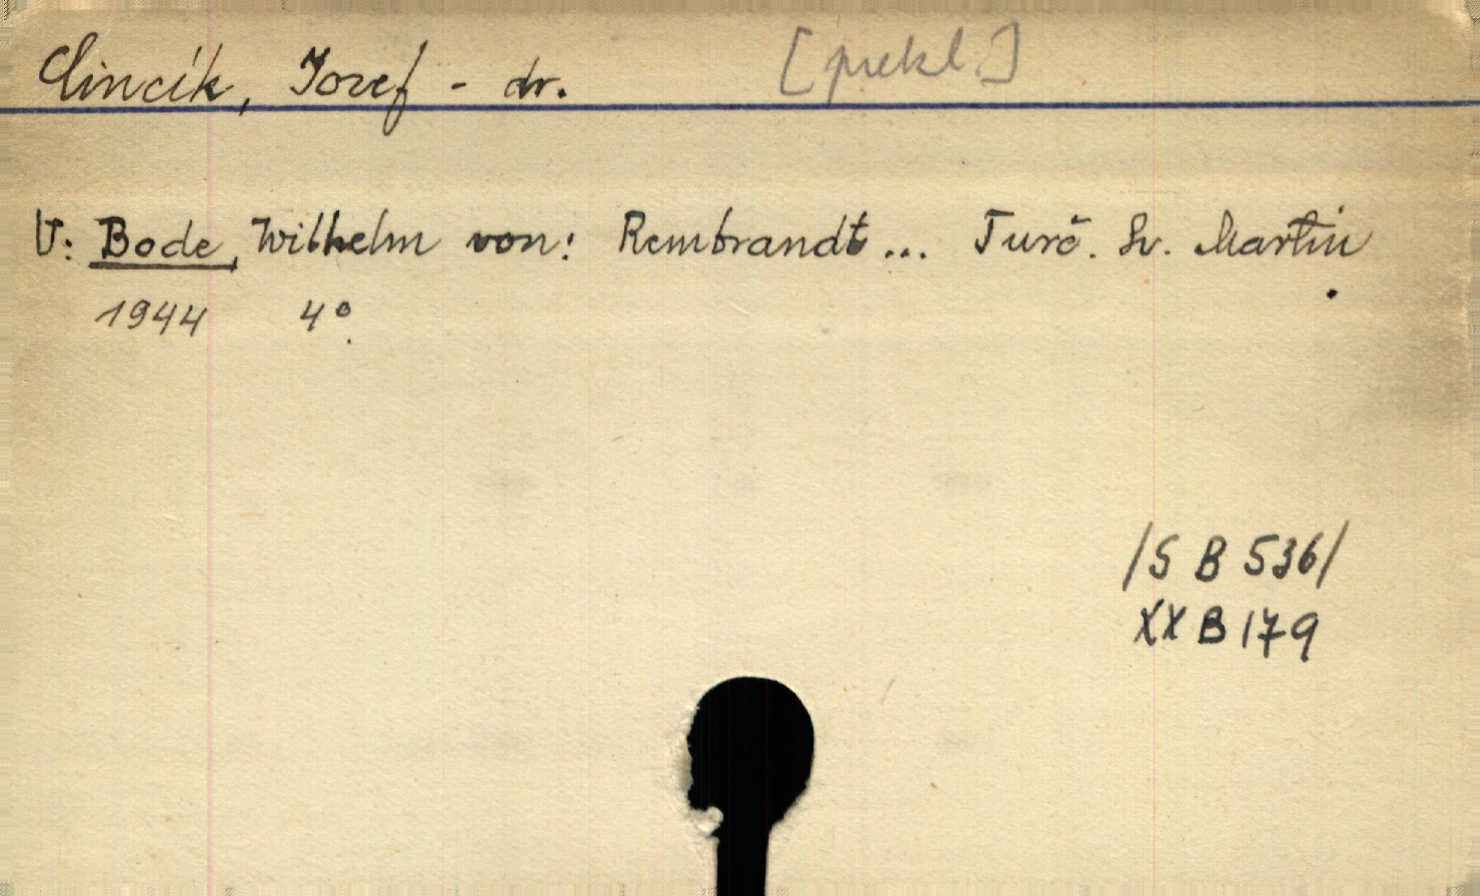 Cincík, Jozef - dr. [prekl.]
V: Bode, Wilhelm von: Rembrandt... Turč. Sv. Martin
1944 4°.
/S B 536/
XX B 179